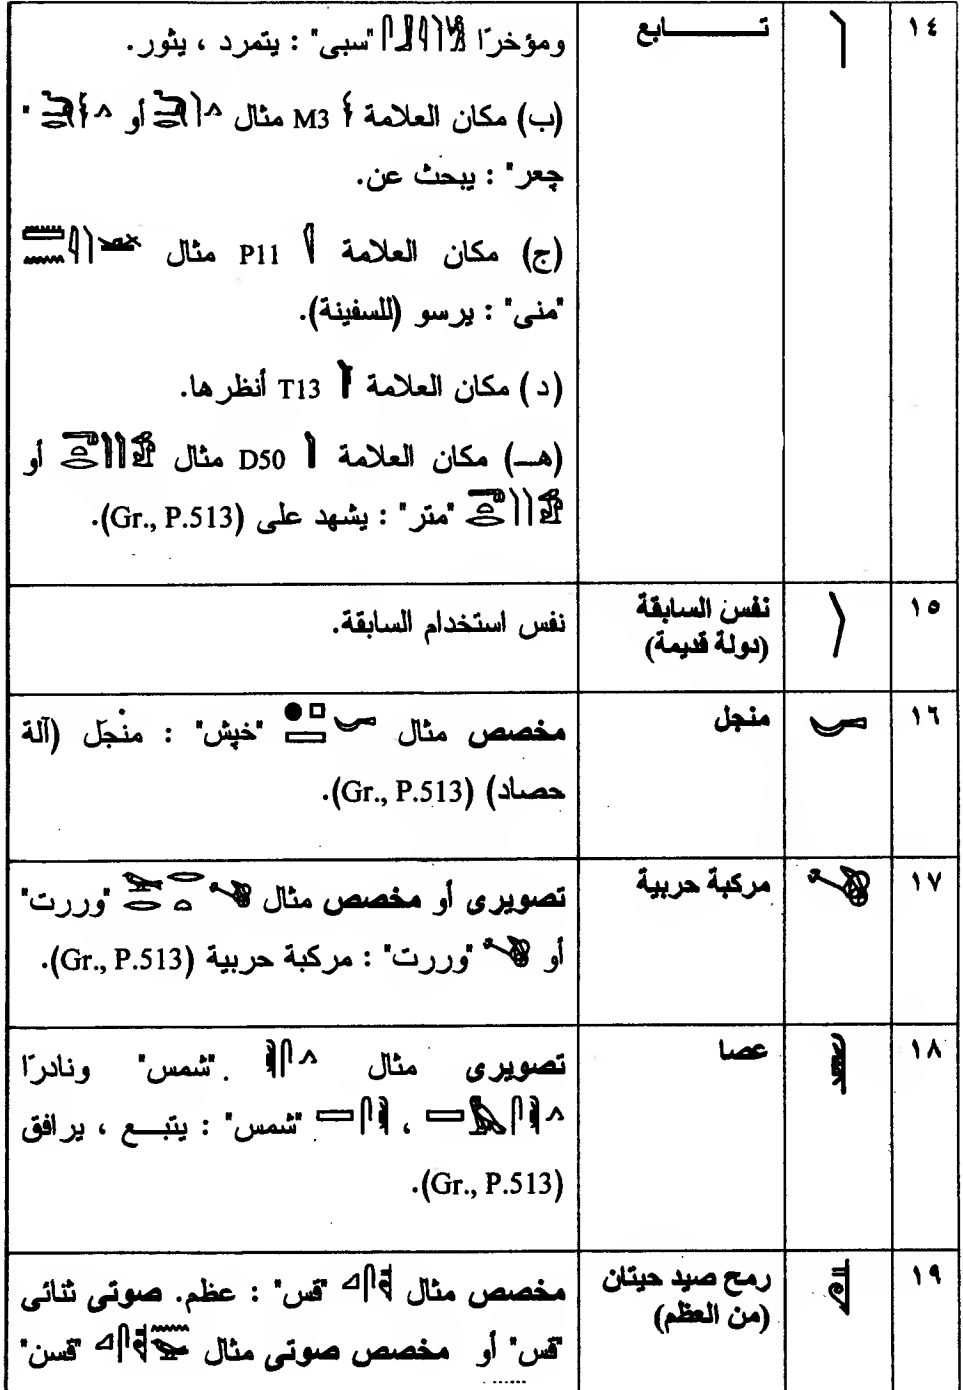 ١٤ تـــــــابع ومؤخرًا "سبى" : يتمرد ، يثور.
(ب) مكان العلامة M3 مثال أو "
چعر" : يبحث عن.
(ج) مكان العلامة P11 مثال
"منى" : يرسو (للسفينة).
(د) مكان العلامة T13 أنظرها.
(هــ) مكان العلامة D50 مثال أو
"متر" : يشهد على (Gr., P.513).
١٥ نفس السابقة
(دولة قديمة)
نفس استخدام السابقة.
١٦ منجل
مخصص مثال "خپش" : منْجَل (آلة
حصاد) (Gr., P.513).
١٧ مركبة حربية
تصويرى أو مخصص مثال "وررت"
أو "وررت" : مركبة حربية (Gr., P.513).
١٨ عصا
تصويرى مثال "شمس" ونادرًا
، "شمس" : يتبـــع ، يرافق
(Gr., P.513).
١٩ رمح صيد حيتان
(من العظم)
مخصص مثال "قس" : عظم. صوتى ثنائى
"قس" أو مخصص صوتى مثال "قسن"